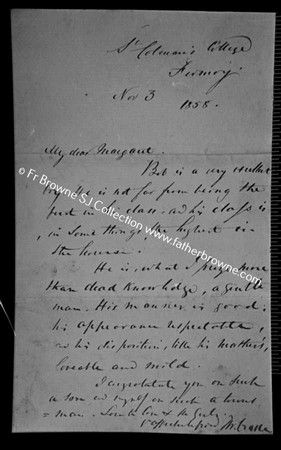 St. Colman's College
Fermoy.
Nov 3
1858.
My dear Margaret.
Bob is a very excellent
boy. He is not far from being the
first in his class, and his class is
, in some things, the highest in
the house.
He is, what I prize more
than dead knowledge, a gentle
man. His manner is good:
his appearance respectable,
and his disposition, like his mother's,
loveable and mild.
I congratulate you on such
a son and myself on such a
= man.
© Fr Browne SJ Collection www.fatherbrowne.com